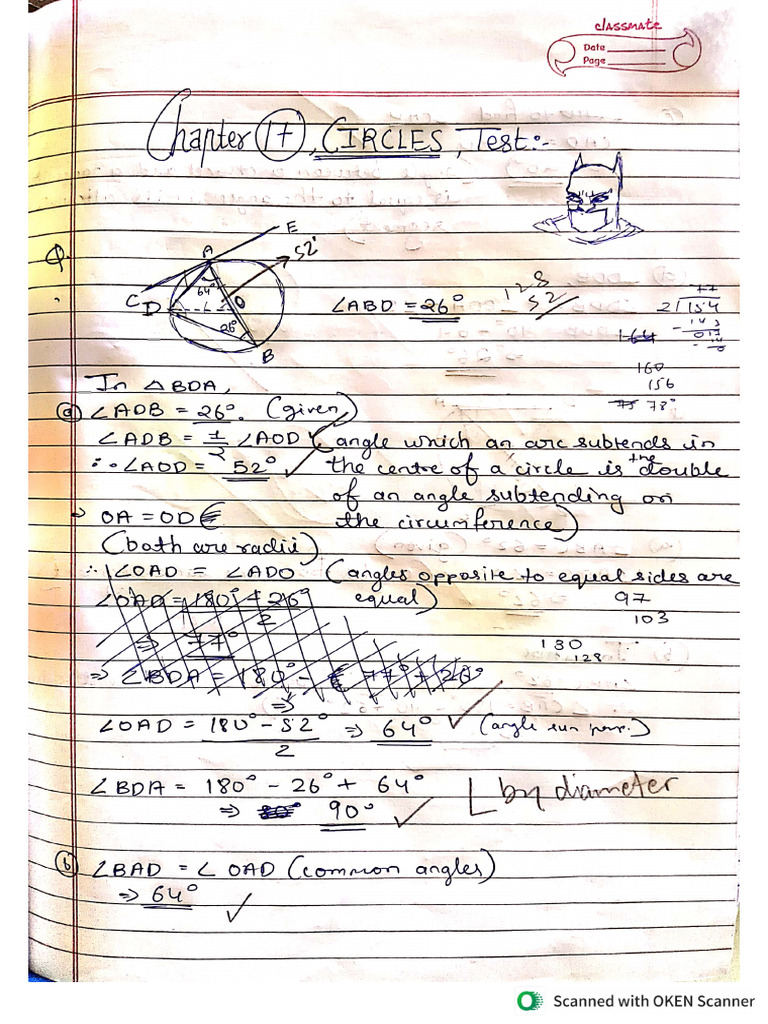 classmate
Date
Page
Chapter 17, CIRCLES, Test:-
Q.
E
A
52°
64°
C
D
O
26°
B
∠ABD = 26°
128
52
77
2√154
160
156
78°
In △BDA,
(a) ∠ADB = 26°. (given)
∠ADB = 1/2 ∠AOD (angle which an arc subtends in
∴ ∠AOD = 52° the centre of a circle is the double
of an angle subtending on
⇒ OA = OD the circumference)
(both are radii)
∴ ∠OAD = ∠ADO (angles opposite to equal sides are
equal)
∠OAD = 180° + 26°
2
97
103
⇒ 77°
180
128
⇒ ∠BDA = 180° - 77° + 26°
⇒
∠OAD = 180° - 52° ⇒ 64° (angle sum
2
∠BDA = 180° - 26° + 64°
⇒ 90°
by diameter
(b) ∠BAD = ∠OAD (common angles)
⇒ 64°
Scanned with OKEN Scanner